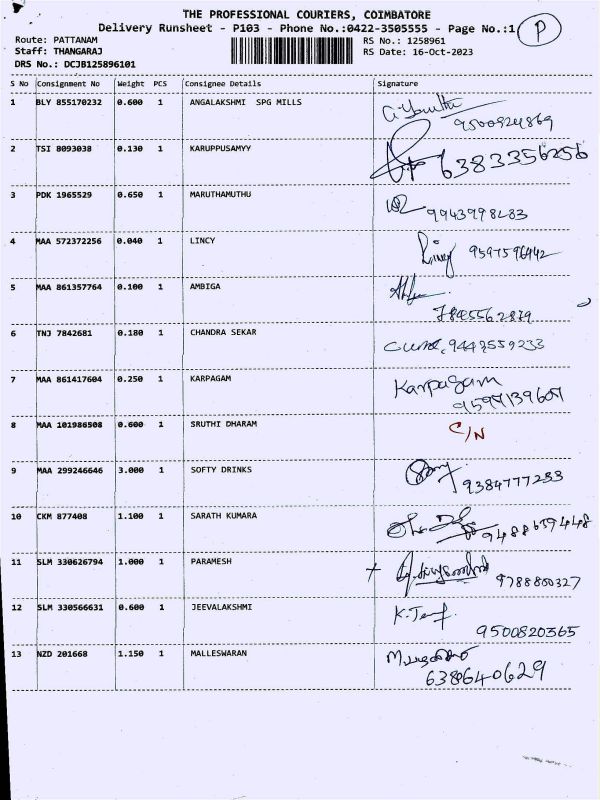 THE PROFESSIONAL COURIERS, COIMBATORE
Delivery Runsheet - P103 - Phone No.:0422-3505555 - Page No.:1 P
Route: PATTANAM RS No.: 1258961
Staff: THANGARAJ RS Date: 16-Oct-2023
DRS No.: DCJB125896101
S No Consignment No Weight PCS Consignee Details Signature
1 BLY 855170232 0.600 1 ANGALAKSHMI SPG MILLS
9500924869
2 TSI 8093038 0.130 1 KARUPPUSAMYY 6383356256
3 PDK 1965529 0.650 1 MARUTHAMUTHU
4 MAA 572372256 0.040 1 LINCY 9597596442
5 MAA 861357764 0.100 1 AMBIGA
7845562879
6 TNJ 7842681 0.180 1 CHANDRA SEKAR
7 MAA 861417604 0.250 1 KARPAGAM Karpagam
8 MAA 101986508 0.600 1 SRUTHI DHARAM C/N
9 MAA 299246646 3.000 1 SOFTY DRINKS
9384777233
10 CKM 877408 1.100 1 SARATH KUMARA
11 SLM 330626794 1.000 1 PARAMESH
9788800327
12 SLM 330566631 0.600 1 JEEVALAKSHMI
9500820365
13 NZD 201668 1.150 1 MALLESWARAN
6380640629